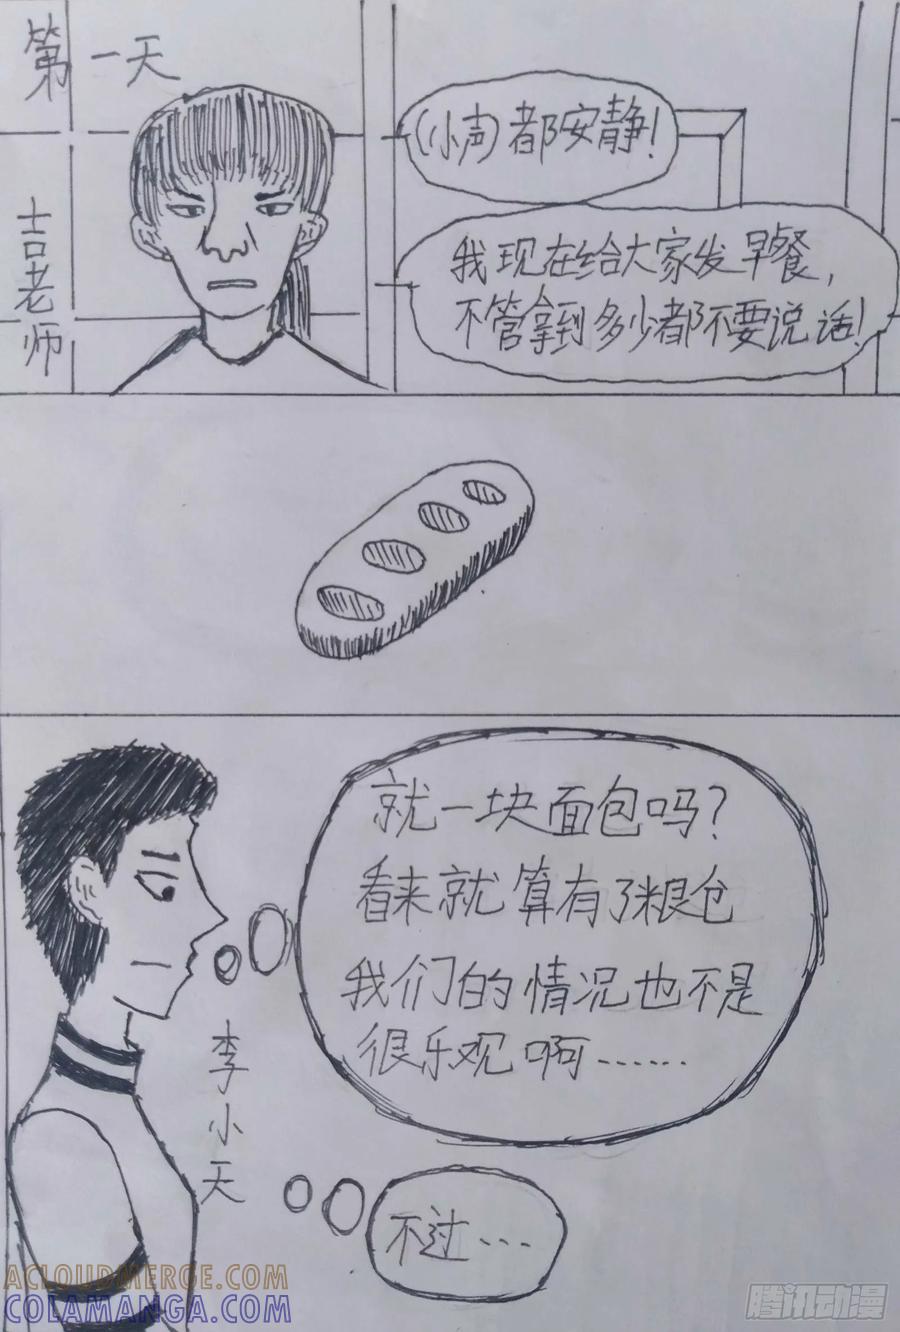 第一天
(小声)都安静!
吉老师
我现在给大家发早餐,
不管拿到多少都不要说话!
就一块面包吗?
看来就算有了粮仓
我们的情况也不是
很乐观啊……
李小天
不过…
ACLOUDMERGE.COM
COLAMANGA.COM
腾讯动漫